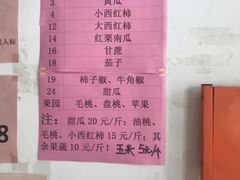 3 黄瓜
4 小西红柿
12 大西红柿
14 红栗南瓜
16 甘蔗
18 茄子
19 柿子椒、牛角椒
24 甜瓜
果园 毛桃、盘桃、苹果
注：甜瓜 20 元/斤；油桃、
毛桃、小西红柿 15 元/斤；其
余果蔬 10 元/斤！玉米 5元/斤
人标
8